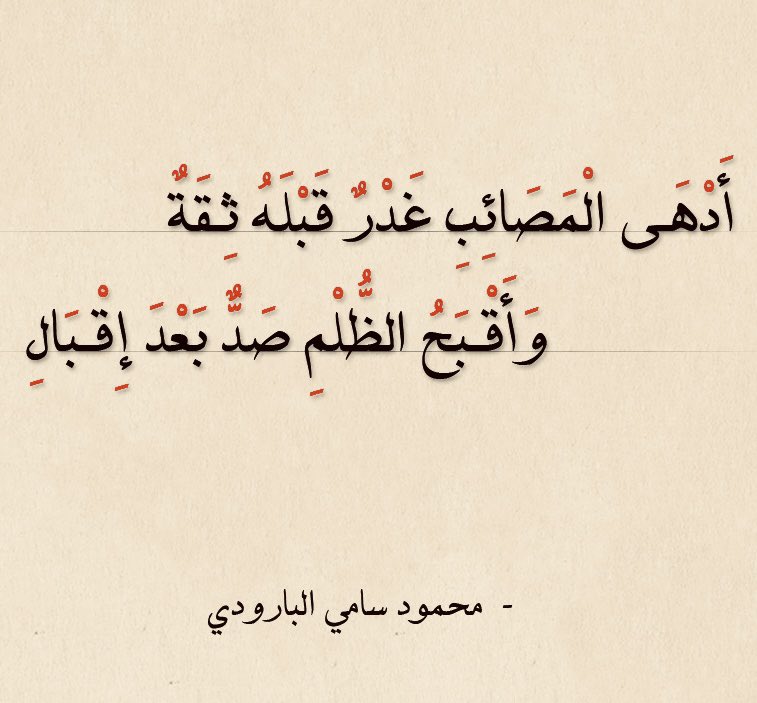 أَدْهَى الْمَصَائِبِ غَدْرٌ قَبْلَهُ ثِقَةٌ
وَأَقْبَحُ الظُّلْمِ صَدٌّ بَعْدَ إِقْبَالِ
- محمود سامي البارودي